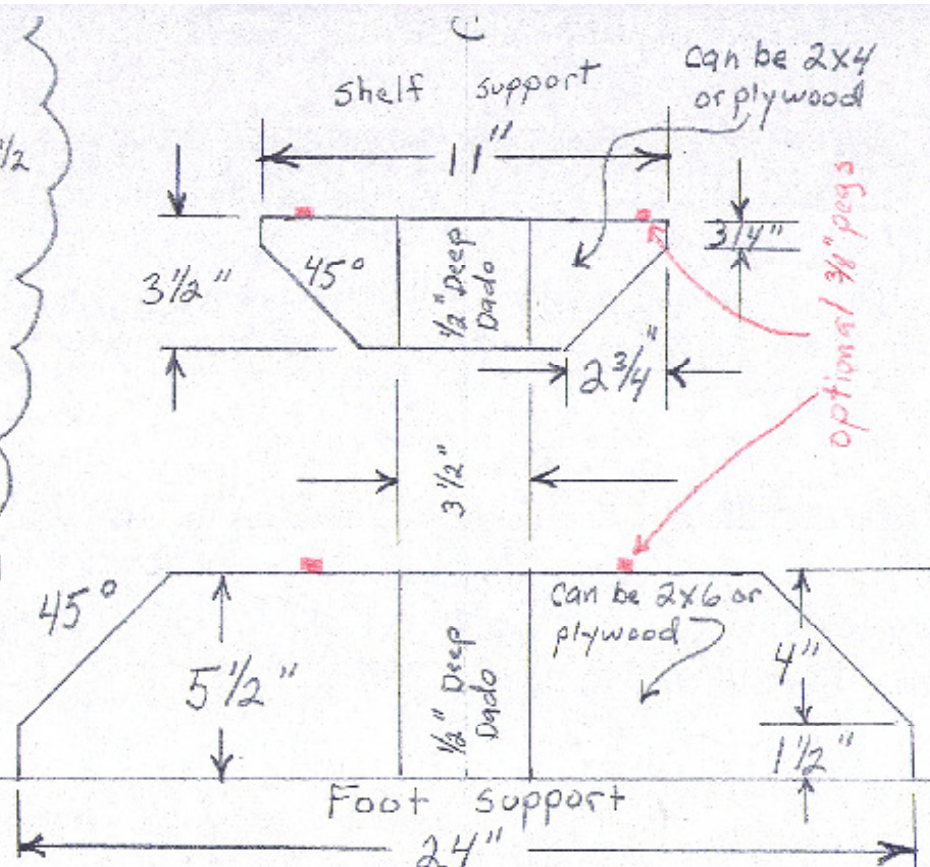 ℄
shelf support
can be 2x4
or plywood
1/2
11"
3 1/2"
45°
1/2" Deep
Dado
3/4"
2 3/4"
optional 3/8" pegs
3 1/2"
45°
5 1/2"
1/2" Deep
Dado
can be 2x6 or
plywood
4"
1 1/2"
Foot support
24"